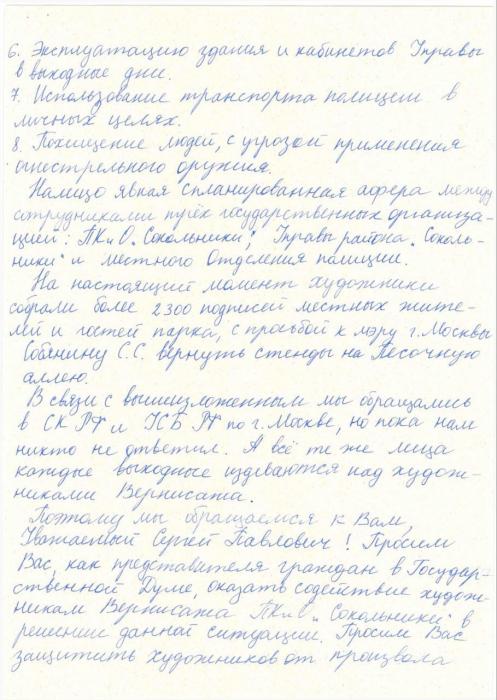 6. Эксплуатацию здания и кабинетов Управы
в выходные дни.
7. Использование транспорта полицеи в
личных целях.
8. Похищение людей, с угрозой применения
огнестрельного оружия.
Налицо явная спланированная афера между
сотрудниками трёх государственных организа-
ций: ПКиО „Сокольники", Управы района „Соколь-
ники" и местного Отделения полиции.
На настоящий момент художники
собрали более 2300 подписей местных жите-
лей и гостей парка, с просьбой к мэру г. Москвы
Собянину С.С. вернуть стенды на Песочную
аллею.
В связи с вышеизложенным мы обращались
в СК РФ и УСБ РФ по г. Москве, но пока нам
никто не ответил. А всё те же лица
каждые выходные издеваются над худож-
никами Вернисажа.
Поэтому мы обращаемся к Вам,
Уважаемый Сергей Павлович! Просим
Вас, как представителя граждан в Государ-
ственной Думе, оказать содействие худож-
никам Вернисажа ПКиО „Сокольники" в
решение данной ситуации. Просим Вас
защитить художников от произвола